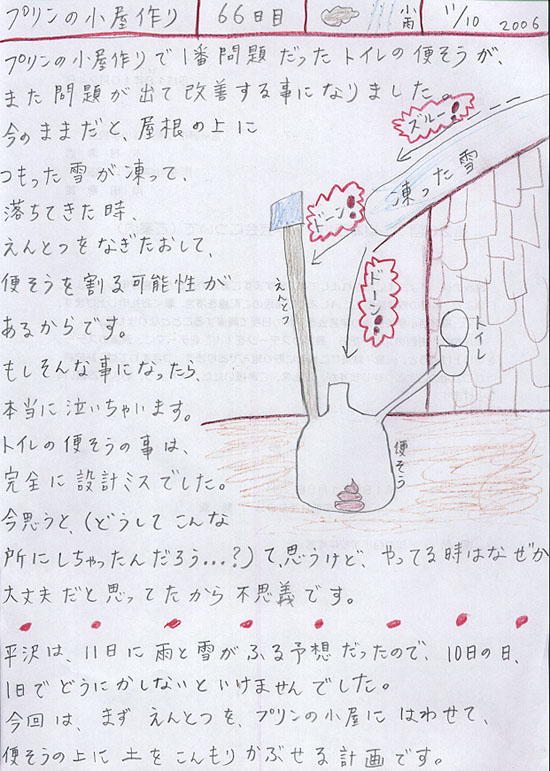 プリンの小屋作り 66日目 小雨 11/10 2006
プリンの小屋作りで1番問題だったトイレの便そうが、
また問題が出て改善する事になりました。
今のままだと、屋根の上に
つもった雪が凍って、
落ちてきた時、
えんとつをなぎたおして、
便そうを割る可能性が
あるからです。
もしそんな事になったら、
本当に泣いちゃいます。
トイレの便そうの事は、
完全に設計ミスでした。
今思うと、(どうしてこんな
所にしちゃったんだろう...?)て、思うけど、やってる時はなぜか
大丈夫だと思ってたから不思義です。
ズルー!
凍った雪
ドーン!
ドーン!
えんとつ
トイレ
便そう
平沢は、11日に雨と雪がふる予想だったので、10日の日、
1日でどうにかしないといけませんでした。
今回は、まずえんとつを、プリンの小屋にはわせて、
便そうの上に土をこんもりかぶせる計画です。